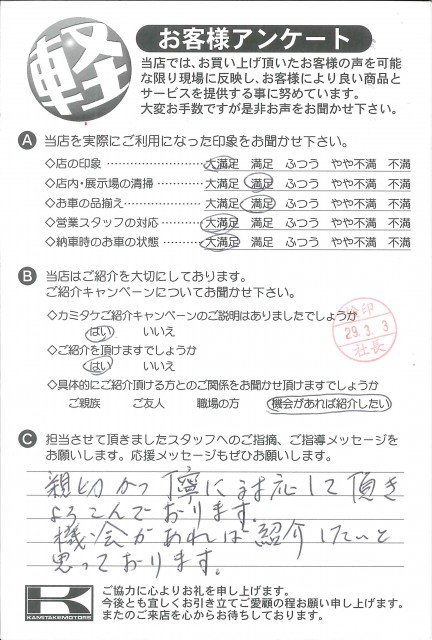 軽
お客様アンケート
当店では、お買い上げ頂いたお客様の声を可能
な限り現場に反映し、お客様により良い商品と
サービスを提供する事に努めています。
大変お手数ですが是非お声をお聞かせ下さい。
A 当店を実際にご利用になった印象をお聞かせ下さい。
◇店の印象 大満足 満足 ふつう やや不満 不満
◇店内・展示場の清掃 大満足 満足 ふつう やや不満 不満
◇お車の品揃え 大満足 満足 ふつう やや不満 不満
◇営業スタッフの対応 大満足 満足 ふつう やや不満 不満
◇納車時のお車の状態 大満足 満足 ふつう やや不満 不満
B 当店はご紹介を大切にしております。
ご紹介キャンペーンについてお聞かせ下さい。
◇カミタケご紹介キャンペーンのご説明はありましたでしょうか
はい いいえ
◇ご紹介を頂けますでしょうか
はい いいえ
検印
29.3.3
社長
◇具体的にご紹介頂ける方とのご関係をお聞かせ頂けますでしょうか
ご親族 ご友人 職場の方 機会があれば紹介したい
C 担当させて頂きましたスタッフへのご指摘、ご指導メッセージを
お願いします。応援メッセージもぜひお願いします。
親切かつ丁寧に対応して頂き
よろこんでおります。
機会があれば紹介したいと
思っております。
K
KAMITAKEMOTORS
ご協力に心よりお礼を申し上げます。
今後とも宜しくお引き立てご愛顧の程お願い申し上げます。
またのご来店を心からお待ちしております。